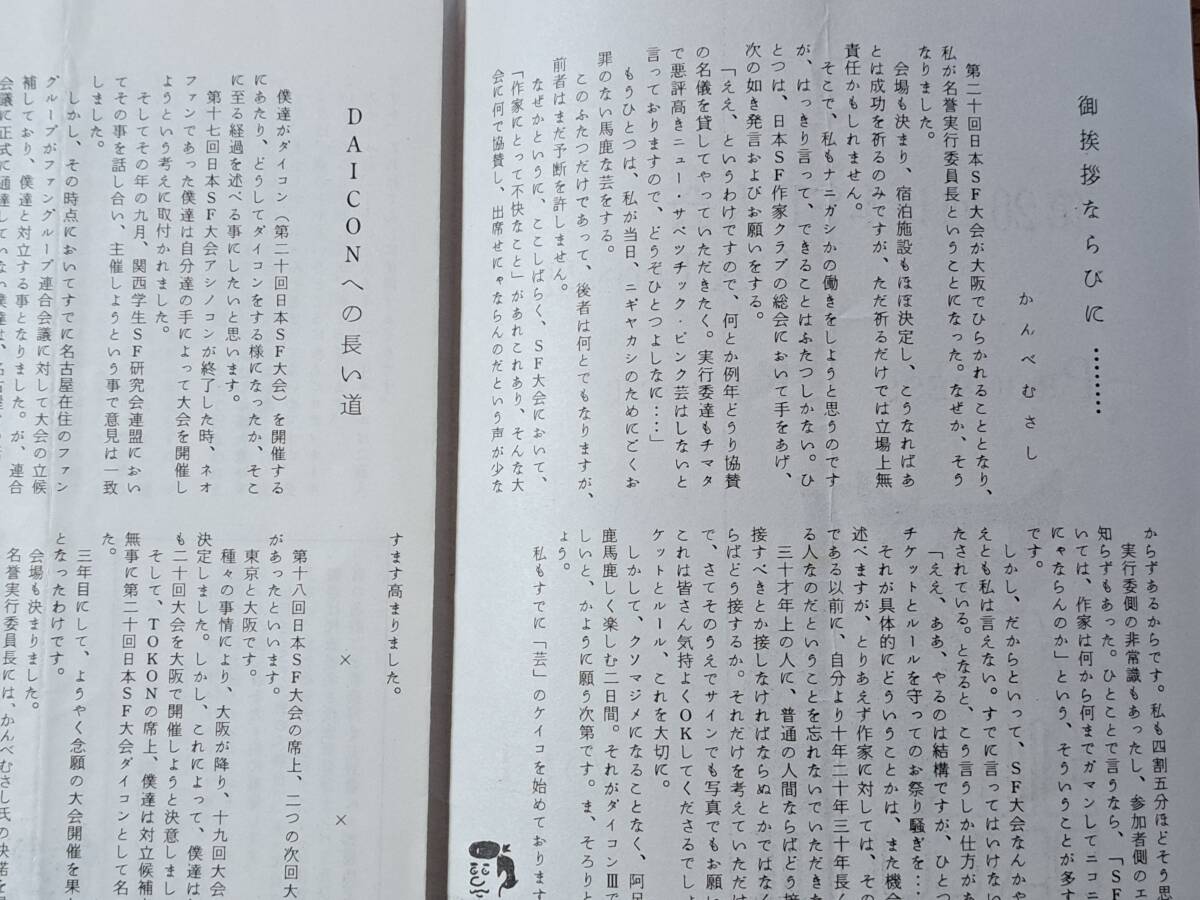 御挨拶ならびに………
かんべむさし
第二十回日本SF大会が大阪でひらかれることとなり、
私が名誉実行委員長ということになった。なぜか、そう
なりました。
会場も決まり、宿泊施設もほぼ決定し、こうなればあ
とは成功を祈るのみですが、ただ祈るだけでは立場上無
責任かもしれません。
そこで、私もナニガシかの働きをしようと思うのです
が、はっきり言って、できることはふたつしかない。ひ
とつは、日本SF作家クラブの総会において手をあげ、
次の如き発言およびお願いをする。
「ええ、というわけですので、何とか例年どうり協賛
の名儀を貸してやっていただきたく。実行委達もチマタ
で悪評高きニュー・サベツチック・ピンク芸はしないと
言っておりますので、どうぞひとつよしなに・・・」
もうひとつは、私が当日、ニギヤカシのためにごくお
罪のない馬鹿な芸をする。
このふたつだけであって、後者は何とでもなりますが、
前者はまだ予断を許しません。
なぜかというに、ここしばらく、SF大会において、
「作家にとって不快なこと」があれこれあり、そんな大
会に何で協賛し、出席せにゃならんのだという声が少な
からずあるからです。私も四割五分ほどそう思
実行委側の非常識もあったし、参加者側のエ
知らずもあった。ひとことで言うなら、「SF
いては、作家は何から何までガマンしてニコニ
にゃならんのか」という、そういうことが多す
です。
しかし、だからといって、SF大会なんかや
えとも私は言えない。すでに言ってはいけない
たされている。となると、こう言うしか仕方がな
「ええ、ああ、やるのは結構ですが、ひとつ
チケットとルールを守ってのお祭り騒ぎを・・・
それが具体的にどういうことかは、また機会
述べますが、とりあえず作家に対しては、その
である以前に、自分より十年二十年三十年長く
る人なのだということを忘れないでいただきた
三十才年上の人に、普通の人間ならばどう接
接すべきとか接しなければならぬとかではなく
らばどう接するか。それだけを考えていただけ
で、さてそのうえでサインでも写真でもお願い
これは皆さん気持よくOKしてくださるでしょ
ケットとルール、これを大切に。
しかして、クソマジメになることなく、阿呆
鹿馬鹿しく楽しむ二日間。それがダイコンⅢで
しいと、かように願う次第です。ま、そろりと
ょう。
私もすでに「芸」のケイコを始めております
DAICONへの長い道
僕達がダイコン（第二十回日本SF大会）を開催する
にあたり、どうしてダイコンをする様になったか、そこ
に至る経過を述べる事にしたいと思います。
第十七回日本SF大会アシノコンが終了した時、ネオ
ファンであった僕達は自分達の手によって大会を開催し
ようという考えに取付かれました。
そしてその年の九月、関西学生SF研究会連盟におい
てその事を話し合い、主催しようという事で意見は一致
しました。
しかし、その時点においてすでに名古屋在住のファン
グループがファングループ連合会議に対して大会の立候
補しており、僕達と対立する事となりました。が、連合
会議に正式に通達していない僕達は、名古屋
すます高まりました。
×　×
第十八回日本SF大会の席上、二つの次回大
があったといいます。
東京と大阪です。
種々の事情により、大阪が降り、十九回大会
決定しました。しかし、これによって、僕達は
も二十回大会を大阪で開催しようと決意しまし
そして、TOKONの席上、僕達は対立候補
無事に第二十回日本SF大会ダイコンとして名
た。
三年目にして、ようやく念願の大会開催を果
となったわけです。
会場も決まりました。
名誉実行委員長には、かんべむさし氏の快諾を